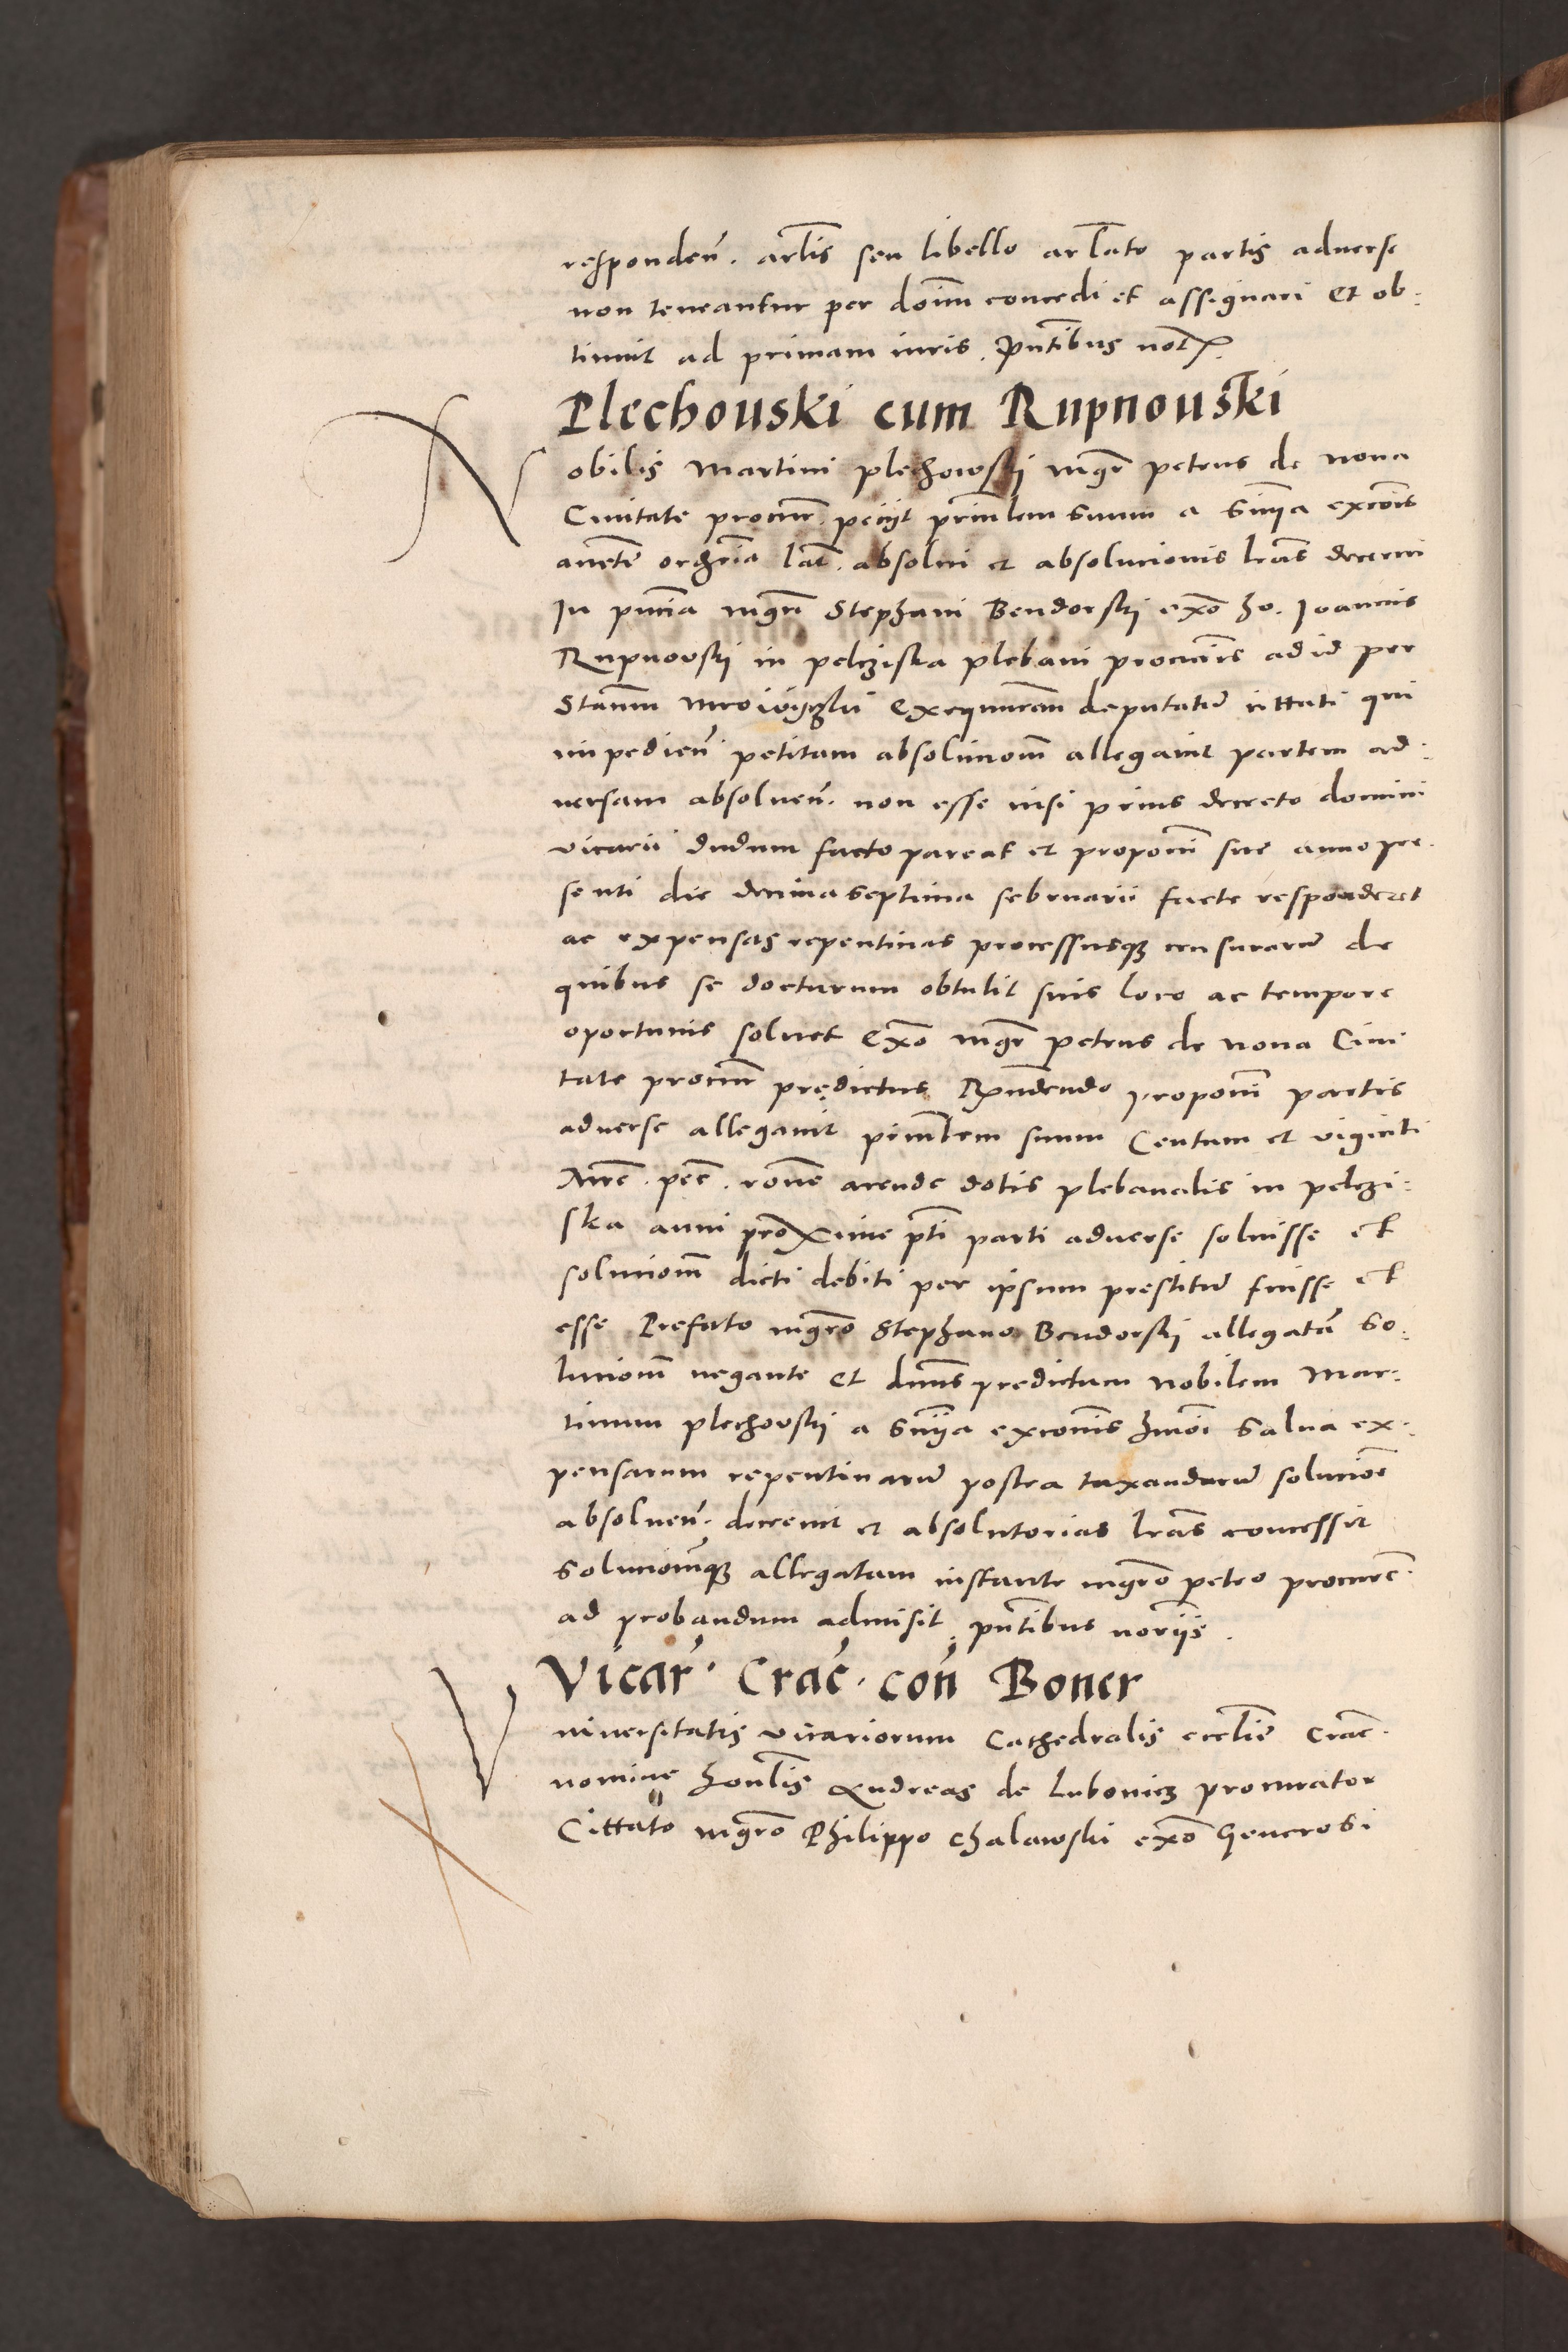 responden̄. artl̄is seu libello artl̄ato partis aduerse
non teneantur per dominū concedi et assignari Et ob:
tinuit ad primam iuris. Pn̄tibus not̄
Plechouski cum Rupnouski
Nobilis Martini plechowskj mg̅r petrus de noua
Ciuitate procur̄. petijt prin̄lem suum a sn̄ia excoīs
aucte ordīria lat̄. absolui et absolucionis lr̄as decerni
In pn̄tia mgr̄i Stephani Bendorskj ex̄o ho. Joannis
Rupnouskj in pelcziska plebani procur̄is ad id per
Stan̄m exequut̄em deputatū cittati qui
impedien̄ petitam absolucion̄m allegauit partem ad:
uersam absoluen̄. non esse nisi prius decreto domini
vicarii dudum facto pareat et proposicōni sue anno pre:
senti die decima septima februarii facte responderet
ac expensas repentinas processusq̨ censurarū de
quibus se docturum obtulit suis loco ac tempore
oportunis soluet Ex̄o mg̅r petrus de noua Ciui
tate procur̄ prędictus Rn̄dendo proposicōni partis
aduerse allegauit prin̄lem suum Centum et viginti
Mr̄c. pec̄. rōne arende dotis plebanalis in pelczi:
ska anni proxime pt̄i parti aduerse soluisse et
solucion̄m dicti debiti per ipsum prestitū fuisse et
esse Prefato mgr̄o Stephano Bendorskj allegatā so:
lucion̄m negante Et dn̄us predictum nobilem Mar:
tinum plechouskj a sn̄ia excoīs hmōi salua ex:
pensarum repentinarū postea taxandarū soluciōe
absoluen̄. decreuit et absolutorias lr̄as concessit
Solucionemq̨ allegatam instante mgr̄o petro procur̄e
ad probandum admisit. pn̄tibus nor̄ijs.
Vicar̄. Crac̄. con̄ Boner
Vniuersitatis vicariorum Cathedralis eccl̄ie Crac̄.
nomine hon̄lis Andreas de lubonicz procurator
Cittato mgr̄o Philippo chalawski ex̄o Generosi